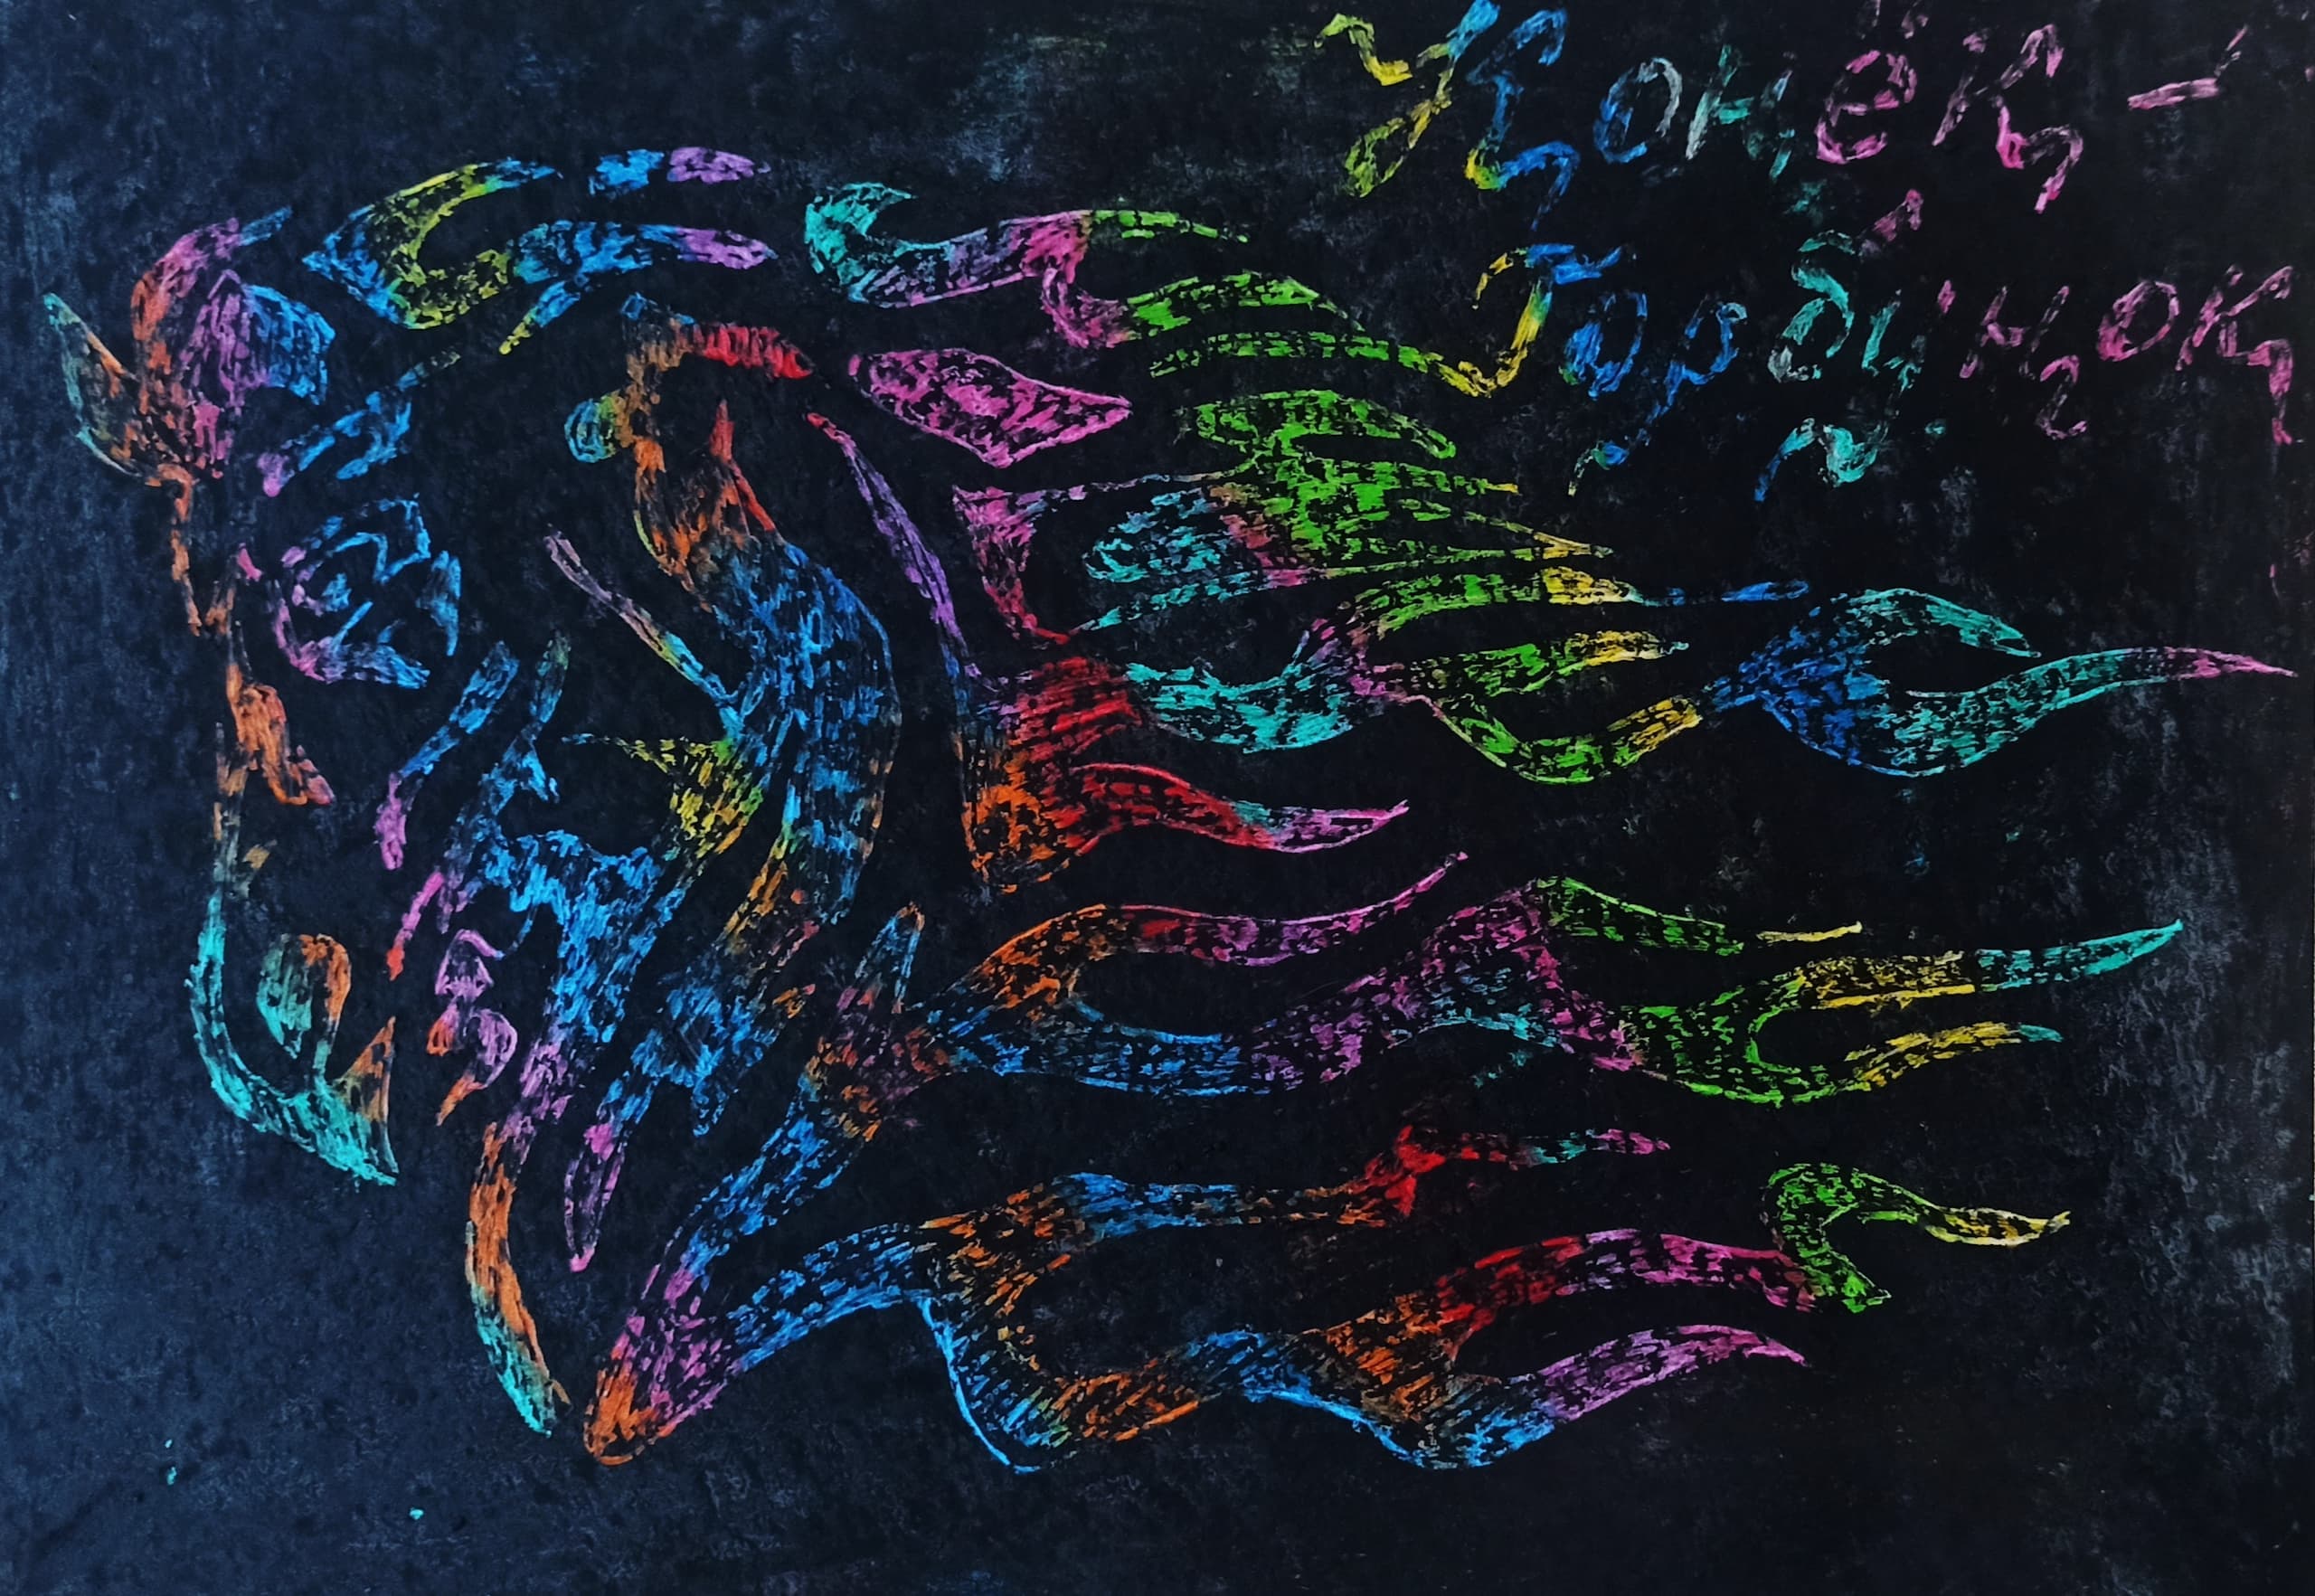 Конёк -
Горбунок